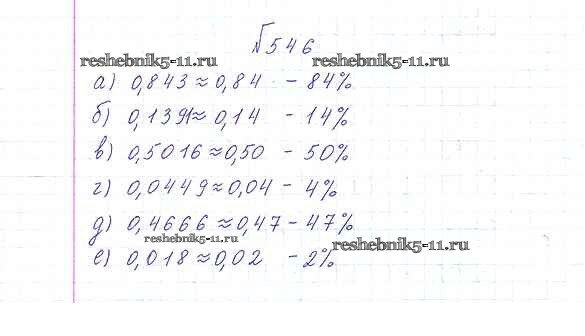 №546
reshebnik5-11.ru reshebnik5-11.ru
а) 0,843≈0,84 - 84%
б) 0,1391≈0,14 - 14%
в) 0,5016≈0,50 - 50%
г) 0,0449≈0,04 - 4%
д) 0,4666≈0,47 - 47%
reshebnik5-11.ru reshebnik5-11.ru
е) 0,018≈0,02 - 2%